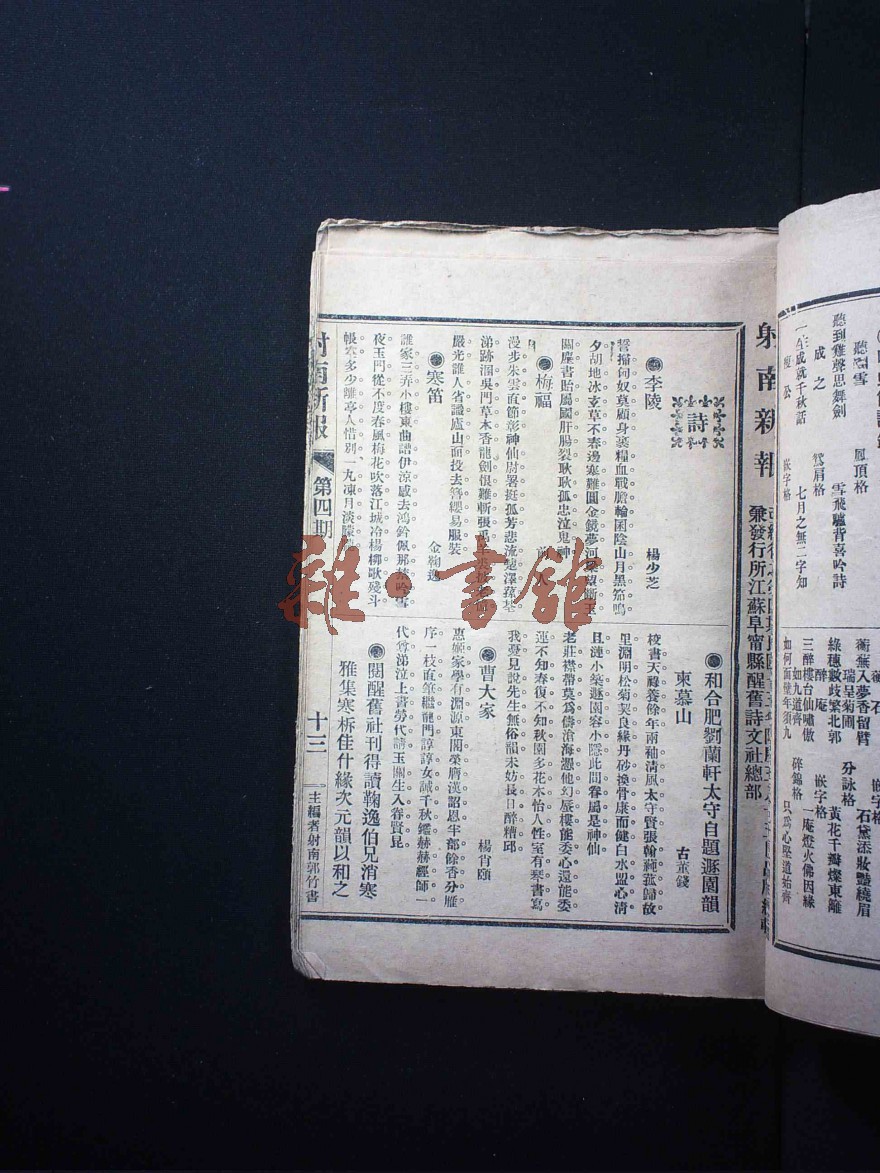 聽雪 鳳頂格
聽到雞聲思舞劍 雪飛驢背喜吟詩
成之 鴛肩格
一生成就千秋話 七月之無二字知
瘦公 嵌字格
蘅石 嵌字格
蘅蕪入夢香留臂 石黛添妝豔繞眉
瑞呈菊圃 分詠格
綠穗數歧繁北郭 黃花千瓣燦東籬
醉庵 嵌字格
三醉樓台仙嘯傲 一庵燈火佛因緣
如九道齊 碎錦格
如何面壁年須九 只為心堅道始齊
射南新報
兼發行所江蘇阜甯縣醒舊詩文社總部
詩
李陵 楊少芝
誓掃匈奴莫顧身裹糧血戰膽輪囷陰山月黑笳鳴
夕胡地冰玄草不春邊寒難圓金鏡夢河梁
關塵書貽屬國肝腸裂耿耿孤忠泣鬼神
梅福 前人
漫步朱雲直節彰神仙尉署挺孤芳悲流遠澤蓀荃
涕跡溷吳門草木香龍劍恨難斬張禹
嚴光誰人省識廬山面投去簪纓易服裝
寒笛 金鞠逸
誰家三弄小樓東曲譜伊涼感去鴻鈴佩那禁吟雪
夜玉門從不度春風梅花吹落江城冷楊柳歌殘斗
帳空多少離亭人惜別一丸凍月淡朦
和合肥劉蘭軒太守自題遯園韻
柬慕山 古董錢
校書天祿養餘年兩袖清風太守賢張翰蓴菰歸故
里淵明松菊契良緣丹砂換骨康而健白水盟心清
且漣小築遯園容小隱此間眷屬是神仙
老莊襟帶莫為儔滄海憑他幻蜃樓能委心還能委
運不知春復不知秋園多花木怡人性室有琴書寫
我憂見說先生無俗韻未妨長日醉糟邱
曹大家 楊肖頤
惠姬家學有淵源東閣榮膺漢詔恩半部餘香分雁
序一枝直筆繼龍門諄諄女誡千秋鑑赫赫經師一
代尊涕泣上書勞代請玉關生入眷賢昆
閱醒舊社刊得讀鞠逸伯兄消寒
雅集寒柝佳什緣次元韻以和之
射南新報 第四期 十三 主編者射南郭竹書
雜·書館